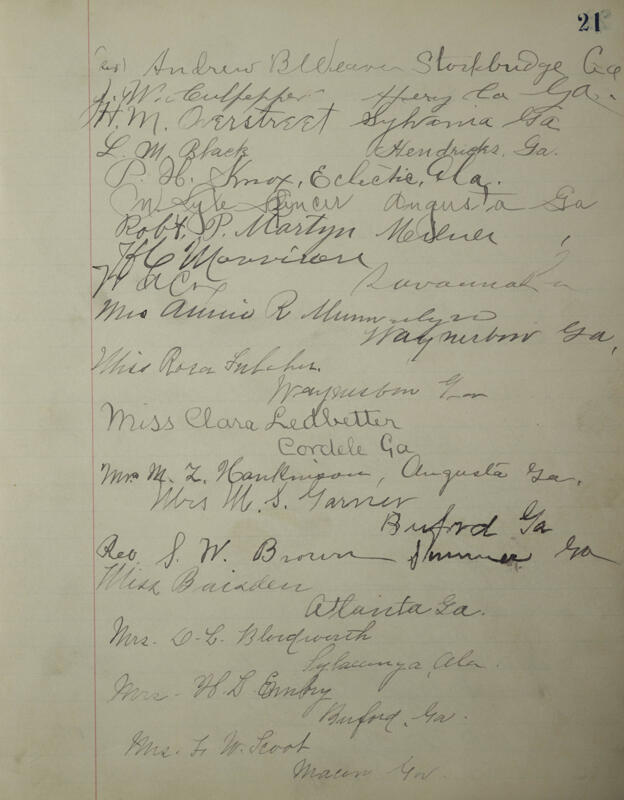 21
Andrew B Weaver Stockbridge Ga
J. W. Culpepper Henry Co Ga.
H. M. Overstreet Sylvania Ga
L. M. Black Hendricks, Ga.
P. H. Knox, Eclectic, Ala.
W Lyle Spencer Augusta Ga
Robt. P. Martyn Milner
H C Morrison
Savannah
Mrs Annie R
Waynesboro Ga,
Miss Rosa Fulcher.
Waynesboro Ga
Miss Clara Ledbetter
Cordele Ga
M. L. Hankinson, Augusta Ga.
Mrs M. S. Garner
Buford Ga
Rev S. W. Brown Sumner Ga
Miss Baisden
Atlanta Ga.
Mrs. D. L. Bloodworth
Ala
Mrs. H L Embry
Buford, Ga.
Mrs. L. W. Scoot
Macon Ga.